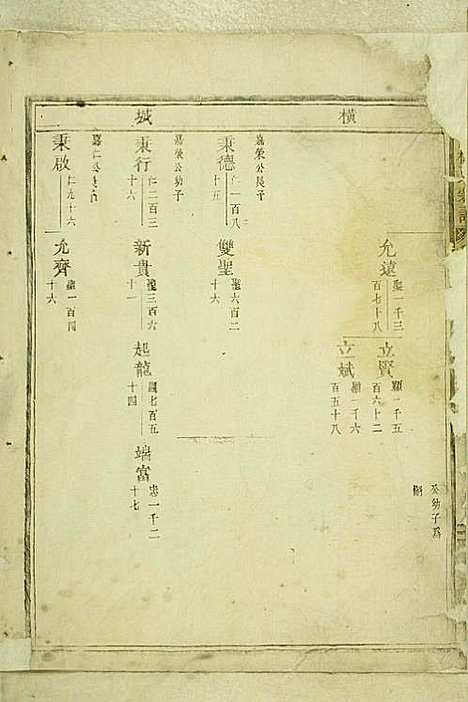 橫城
公幼子爲
嗣
允遠 聖一千三
百七十八
立賢 顯一千五
百六十二
立斌 顯一千六
百五十八
嘉榮公長子
秉德 仁一百八
十五
雙聖 聖六百二
十六
嘉榮公幼子
秉行 仁二百三
十六
新貴 聖三百六
十一
起龍 顯七百五
十四
端富 忠一千二
十七
秉啟 仁九十六
允齊 聖一百四
十六